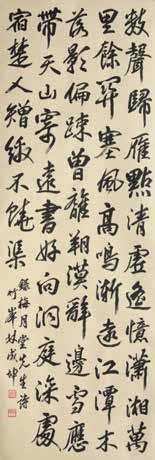 數聲歸雁點清虛遙憶瀟湘萬
里餘關塞風高鳴漸遠江潭木
落影偏踈曾離朔漠辭邊雪應
帶天山寄遠書好向洞庭深處
宿楚人矰繳不饒渠
錄梅月堂先生詩
竹峯林成坤